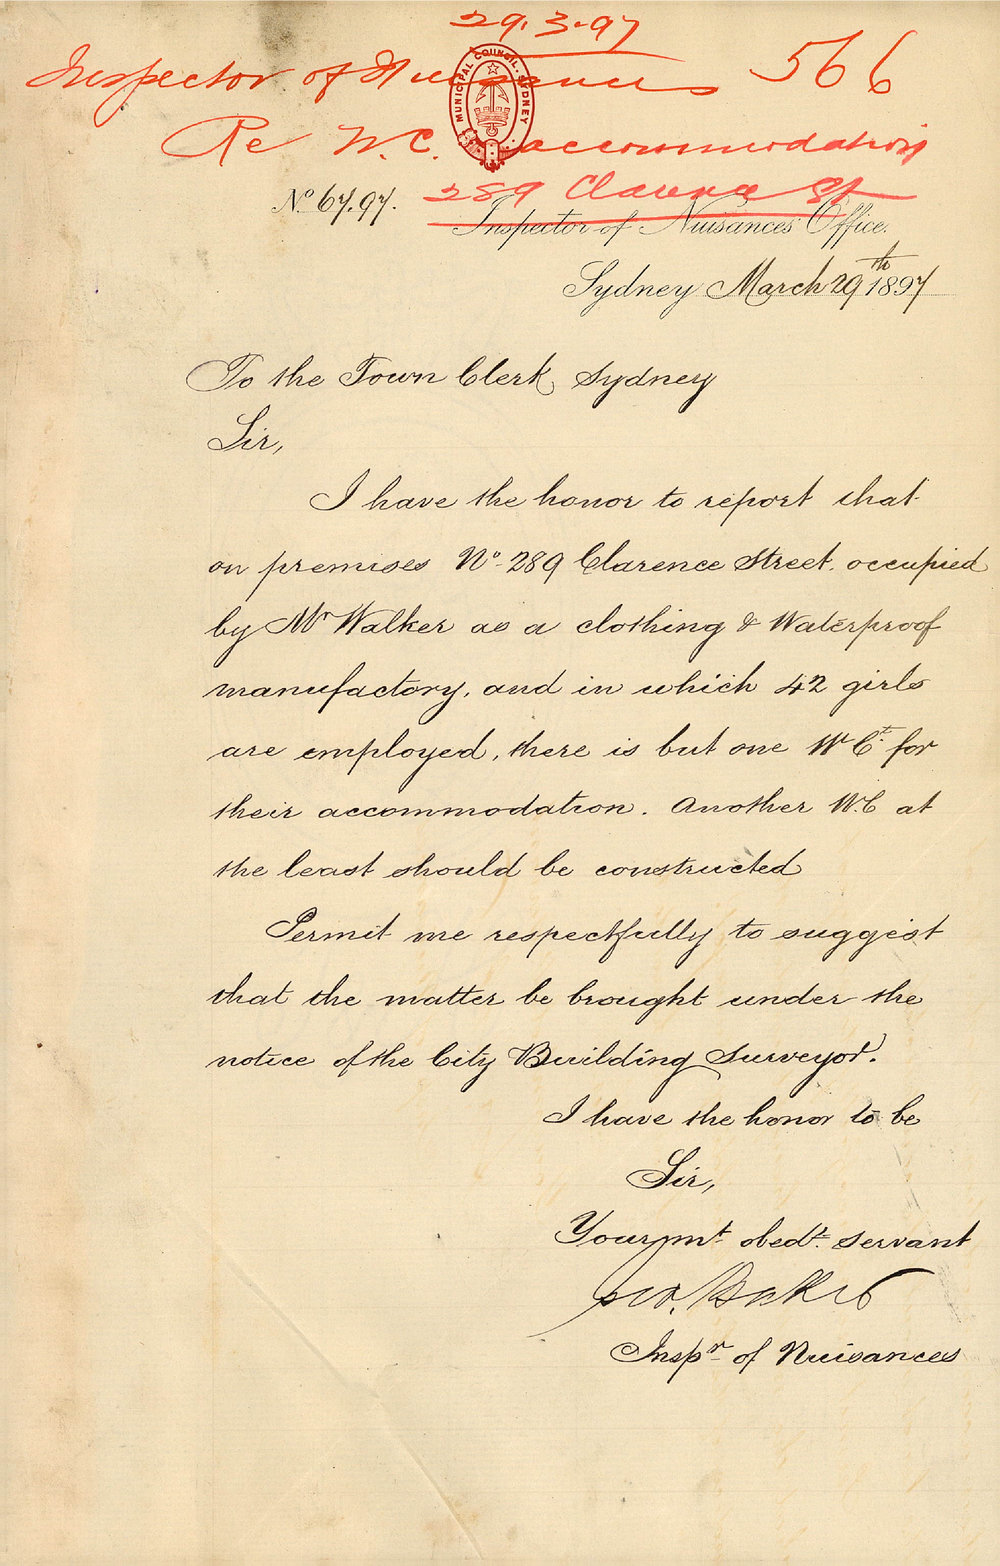 29.3.97
Inspector of Nuisances 566
MUNICIPAL COUNCIL. SYDNEY
Re W.C. accommodation
289 Clarence St
No 67.97.
Inspector of Nuisances Office.
Sydney March 29th 1897
To the Town Clerk, Sydney
Sir,
I have the honor to report that
on premises No. 289 Clarence Street. occupied
by Mr Walker as a clothing & Waterproof
manufactory, and in which 42 girls
are employed, there is but one W Ct. for
their accommodation. Another W.C at
the least should be constructed
Permit me respectfully to suggest
that the matter be brought under the
notice of the City Building Surveyor.
I have the honor to be
Sir,
Your mt. obedt. servant
Baker
Inspr. of Nuisances